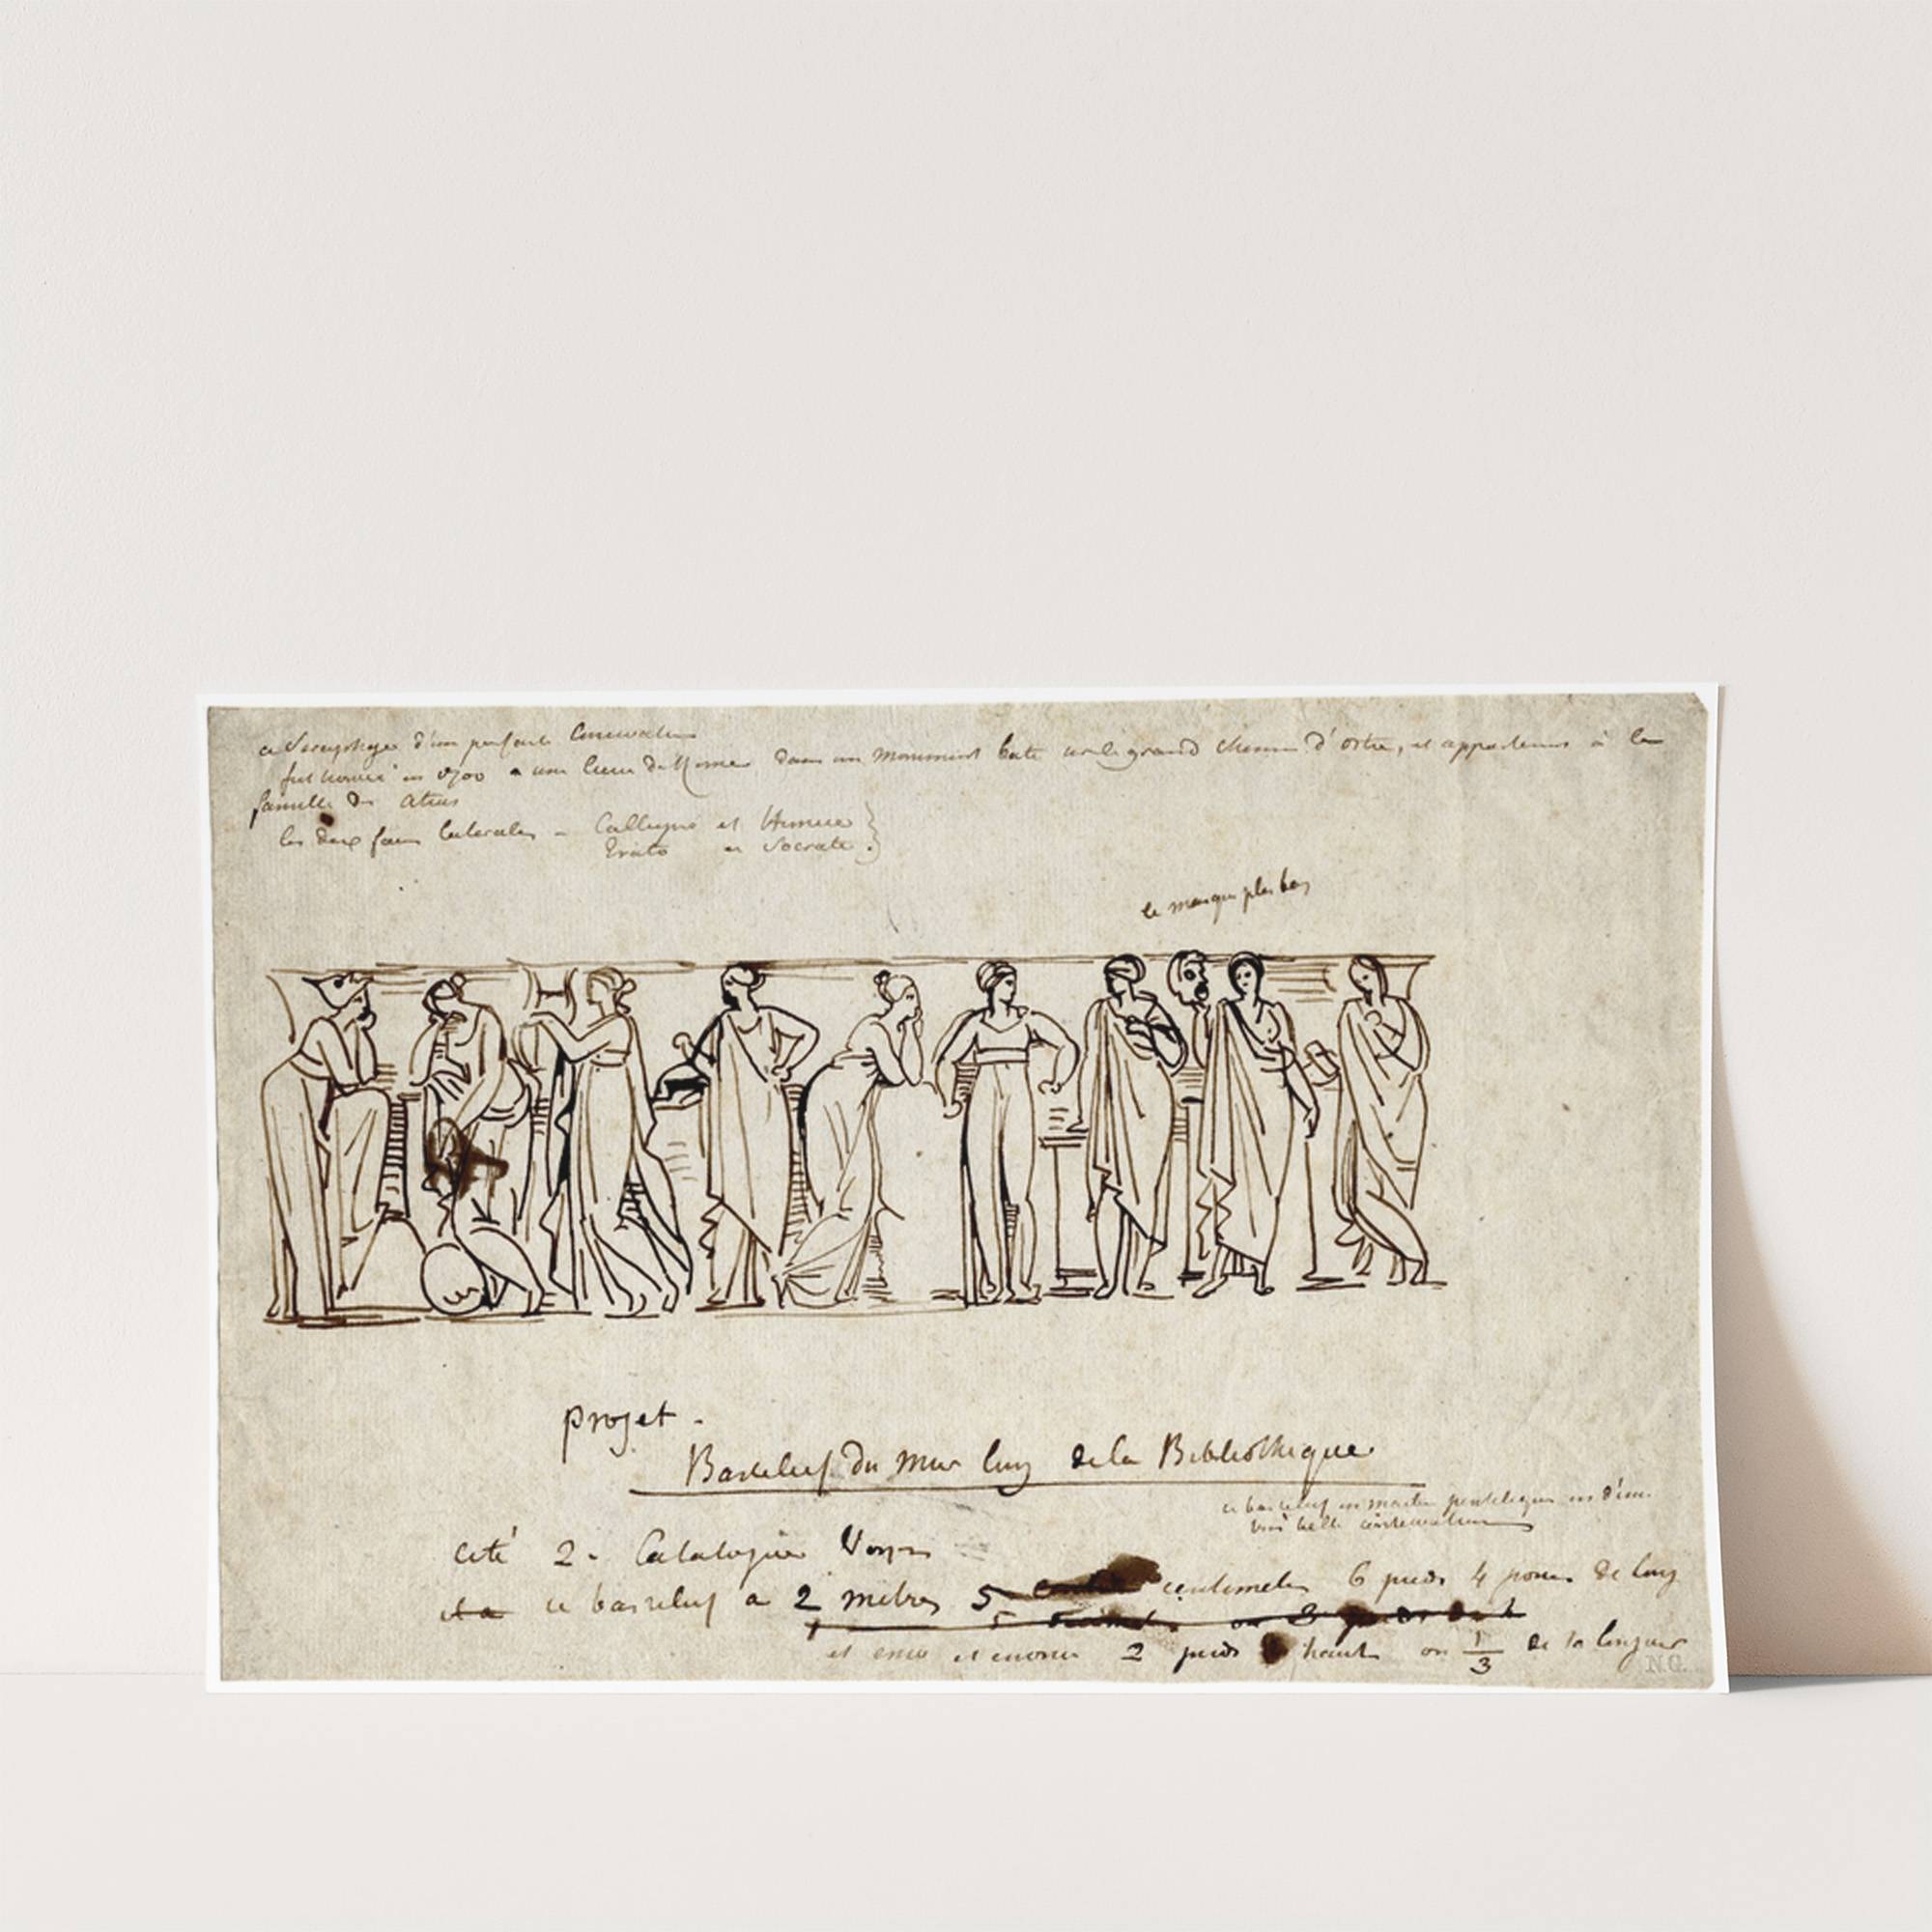 ce Sarcophage d'un parfaite Conservation
fut trouvé en 1700 a une lieue de Rome dans un monument bati sur le grand chemin d'ostie, et appartenant à la
famille des Atius
les deux faces laterales - Calliope et Homere
Erato et Socrate.
le masque plus bas
projet.
Basrelief du Mur long de la Bibliotheque
ce basrelief en marbre pentelique est d'une
très belle conservation
coté 2. Catalogue
ce basrelief a 2 metres 5 centimetres 6 pieds 4 pouces de long
5 ou 3
et environ 2 pieds haut ou 1/3 de la longueur
N.G.